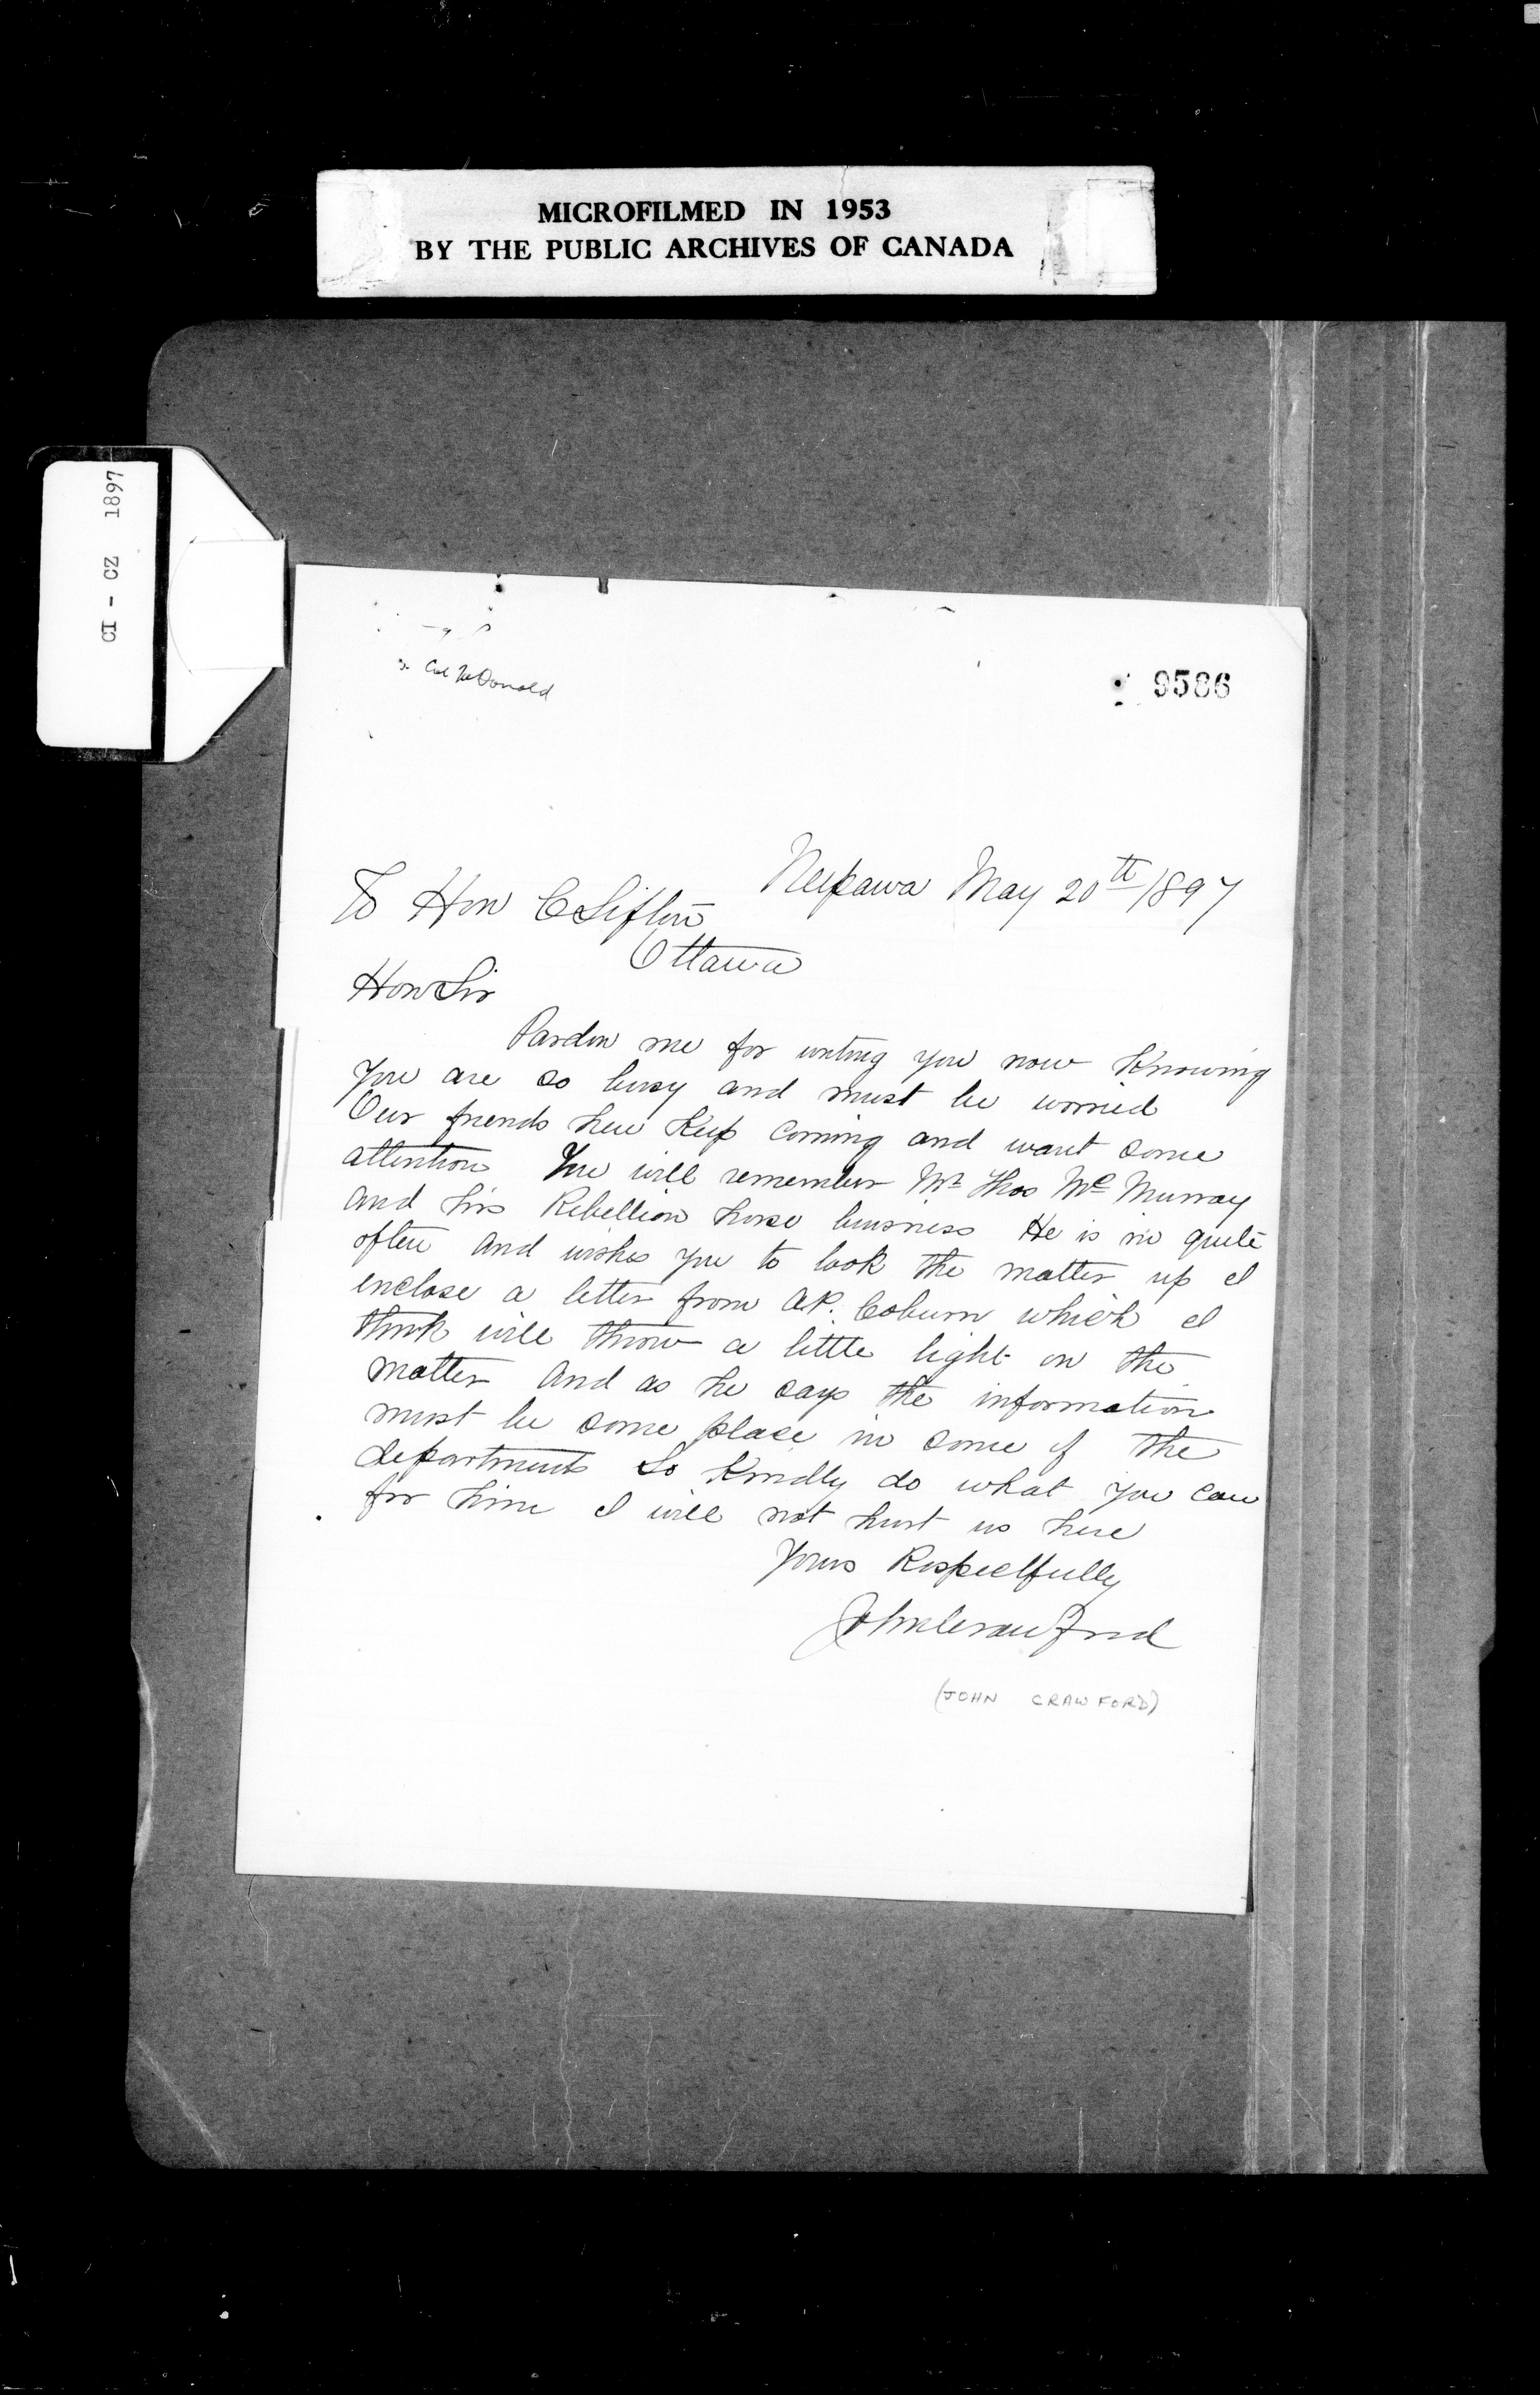 MICROFILMED IN 1953
BY THE PUBLIC ARCHIVES OF CANADA
CI - CZ 1897
Col McDonald
9586
Neepawa May 20th/1897
To Hon C Sifton
Ottawa
Hon Sir
Pardon me for writing you now Knowing
you are so busy and must be worried
Our friends here Keep coming and want some
attention You will remember Mr Thos Mc Murray
and his Rebellion horse business He is in quite
often and wishes you to look the matter up I
enclose a letter from A.P. Coburn which I
think will throw a little light on the
matter and as he says the information
must be some place in some of the
departments So Kindly do what you can
for him I will not hurt us here
Yours Respectfully
John Crawford
(JOHN CRAWFORD)